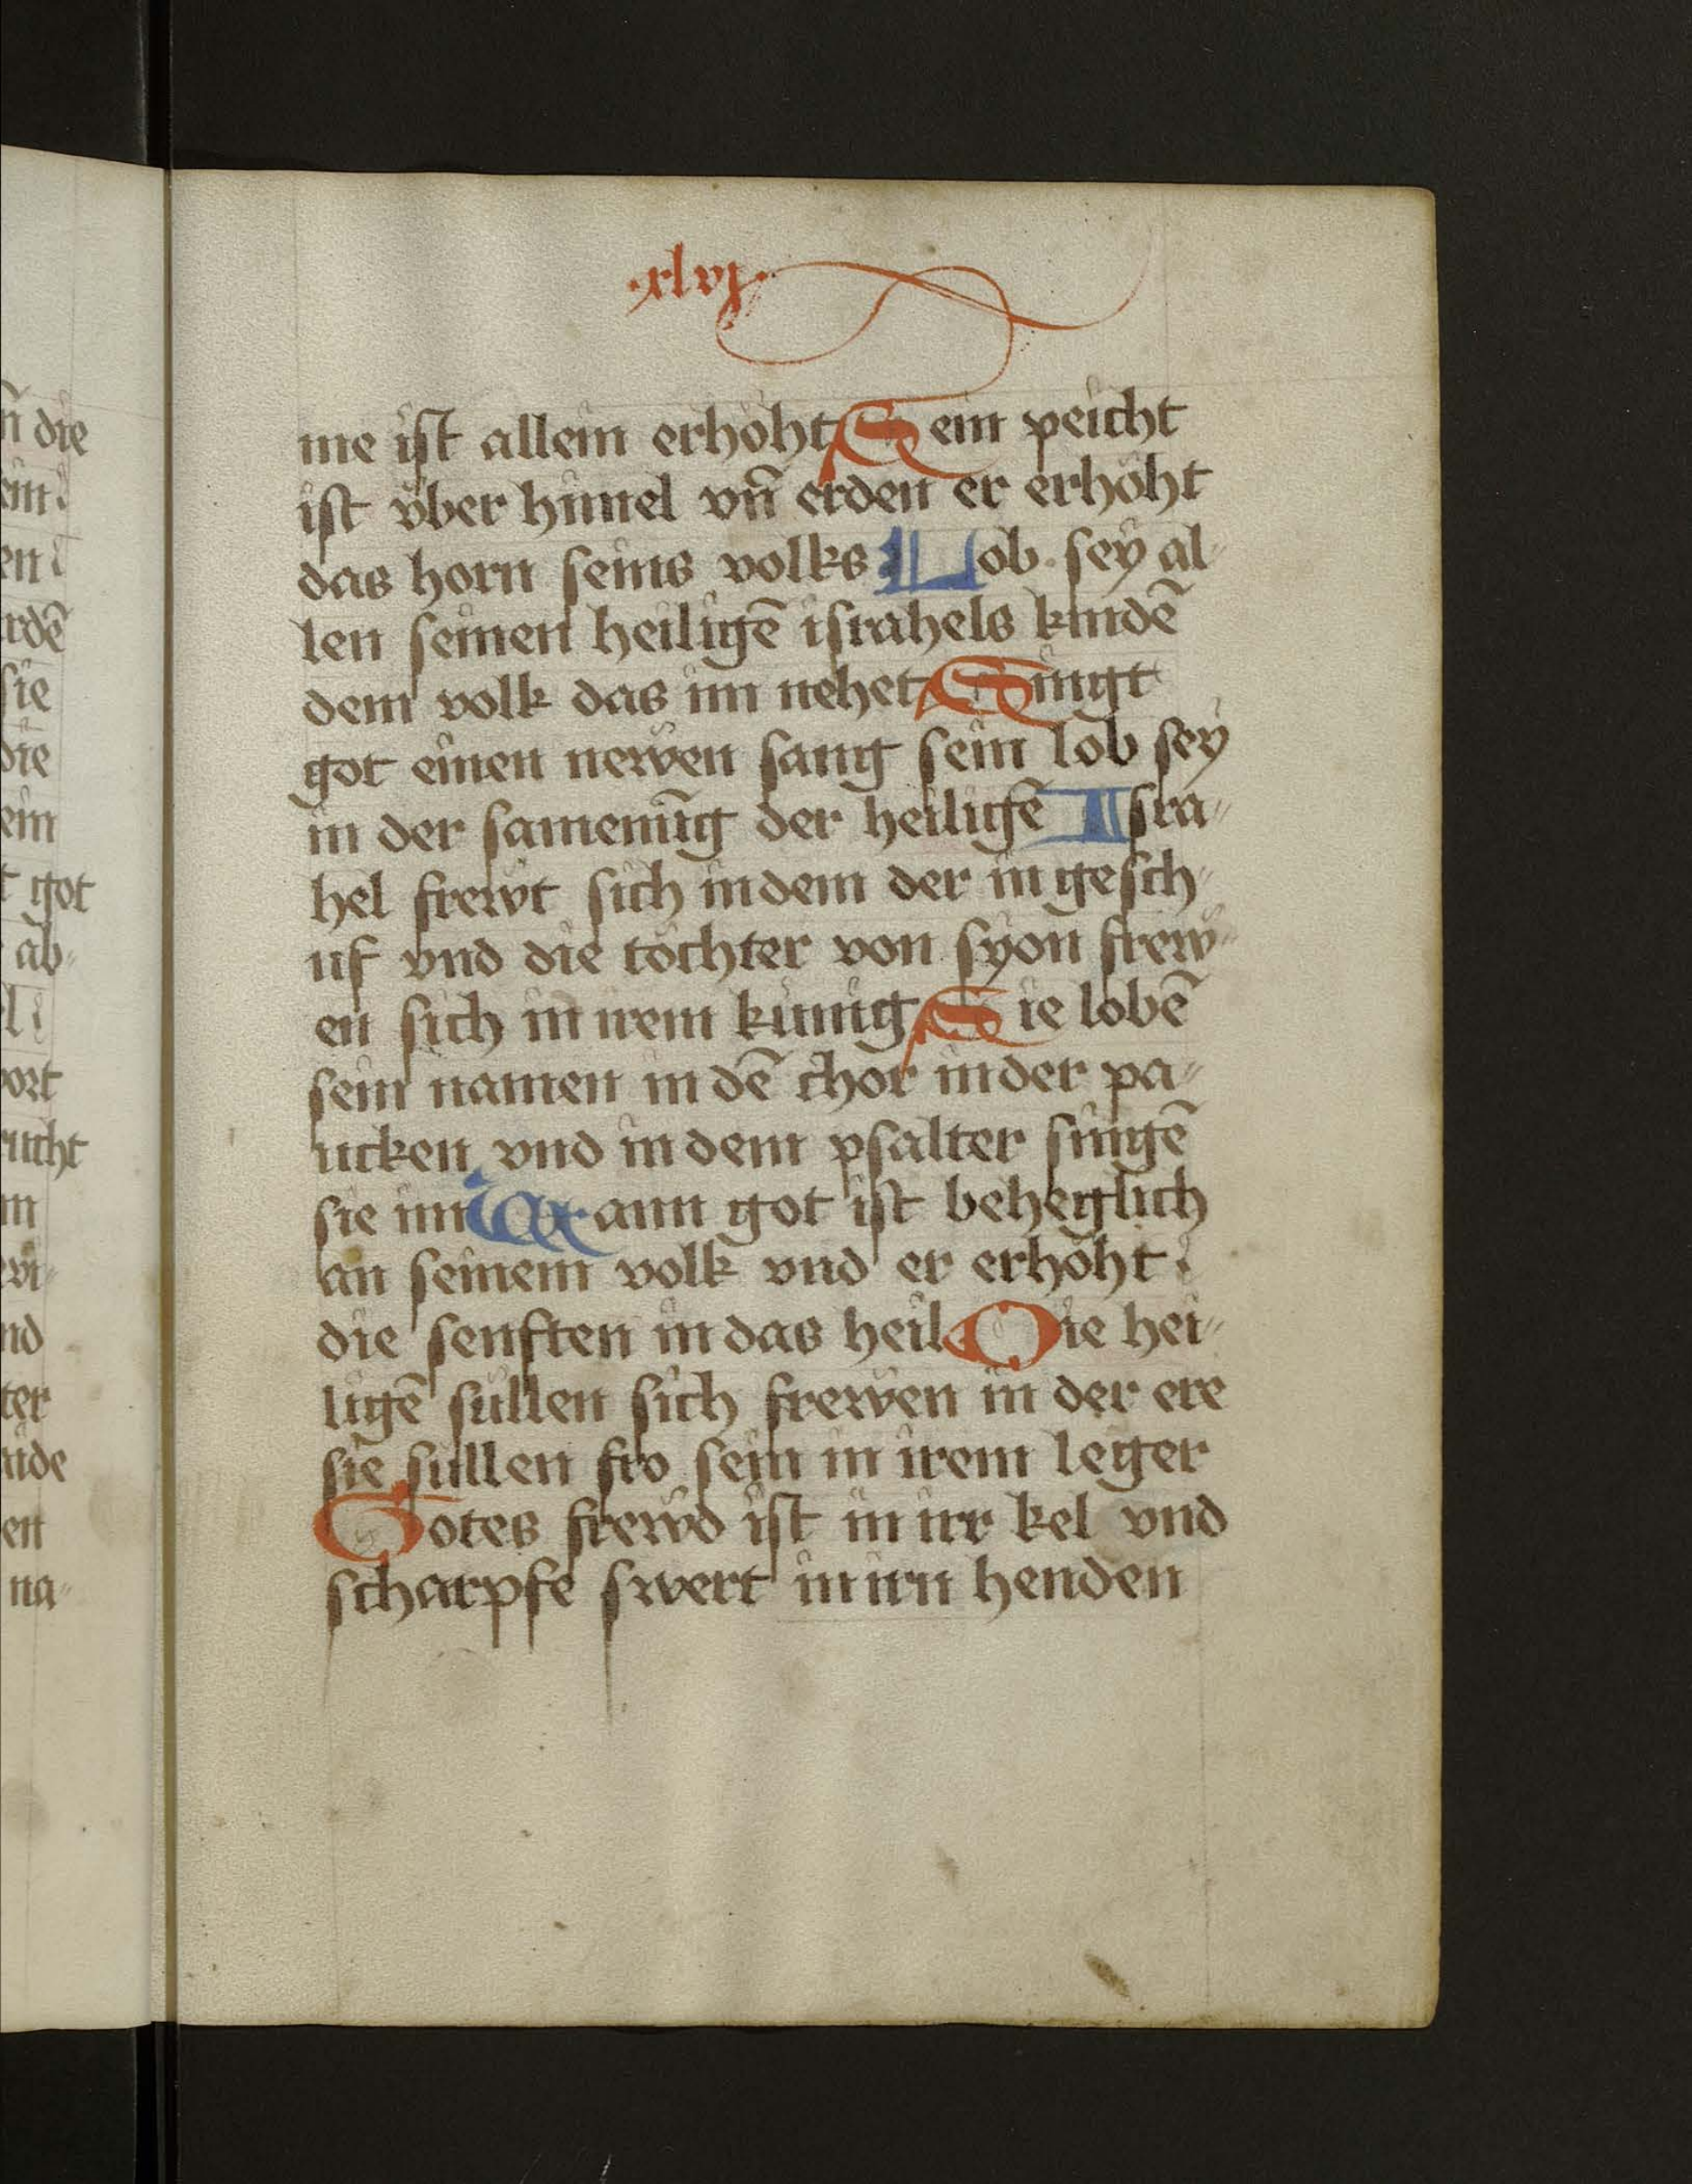 n̄ die
ein
en
rdē
sie
die
ein
t got
ab⸗
l
ort
ucht
m
nd
ter
aide
en
na⸗
·xlvj·
me ist allein erhöht Sein peicht
ist vͤber himel vn̄ erden er erhöht
das horn seins volks Lob sey al⸗
len seinen heiligē israhels kindē
dem volk das im nehet Singt
got einen newen sang sein lob sey
in der samenūg der heiligē Isra⸗
hel frewt sich in dem der in gesch⸗
uf vnd die töchter von syon frew⸗
en sich in irem kunig Sie lobē
sein namen in dē chor in der pa⸗
ucken vnd in dem psalter singē
sie im Wann got ist beheglich
an seinem volk vnd er erhöht
die senften in das heil Die hei⸗
ligē sullen sich frewen in der ere
sie sullen fro sein in irem leger
Gotes frewd ist in irr kel vnd
scharpfe swert in irn henden